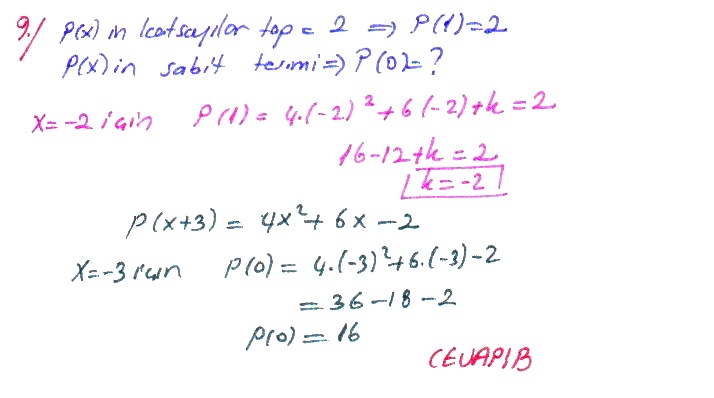 9./ P(x) in katsayılar top = 2 ⇒ P(1)=2
P(x) in sabit terimi ⇒ P(0)=?
x=-2 için P(1) = 4.(-2)²+6(-2)+k=2
16-12+k=2
k=-2
P(x+3) = 4x²+6x-2
x=-3 için P(0) = 4.(-3)²+6.(-3)-2
=36-18-2
P(0)=16
CEVAP:B